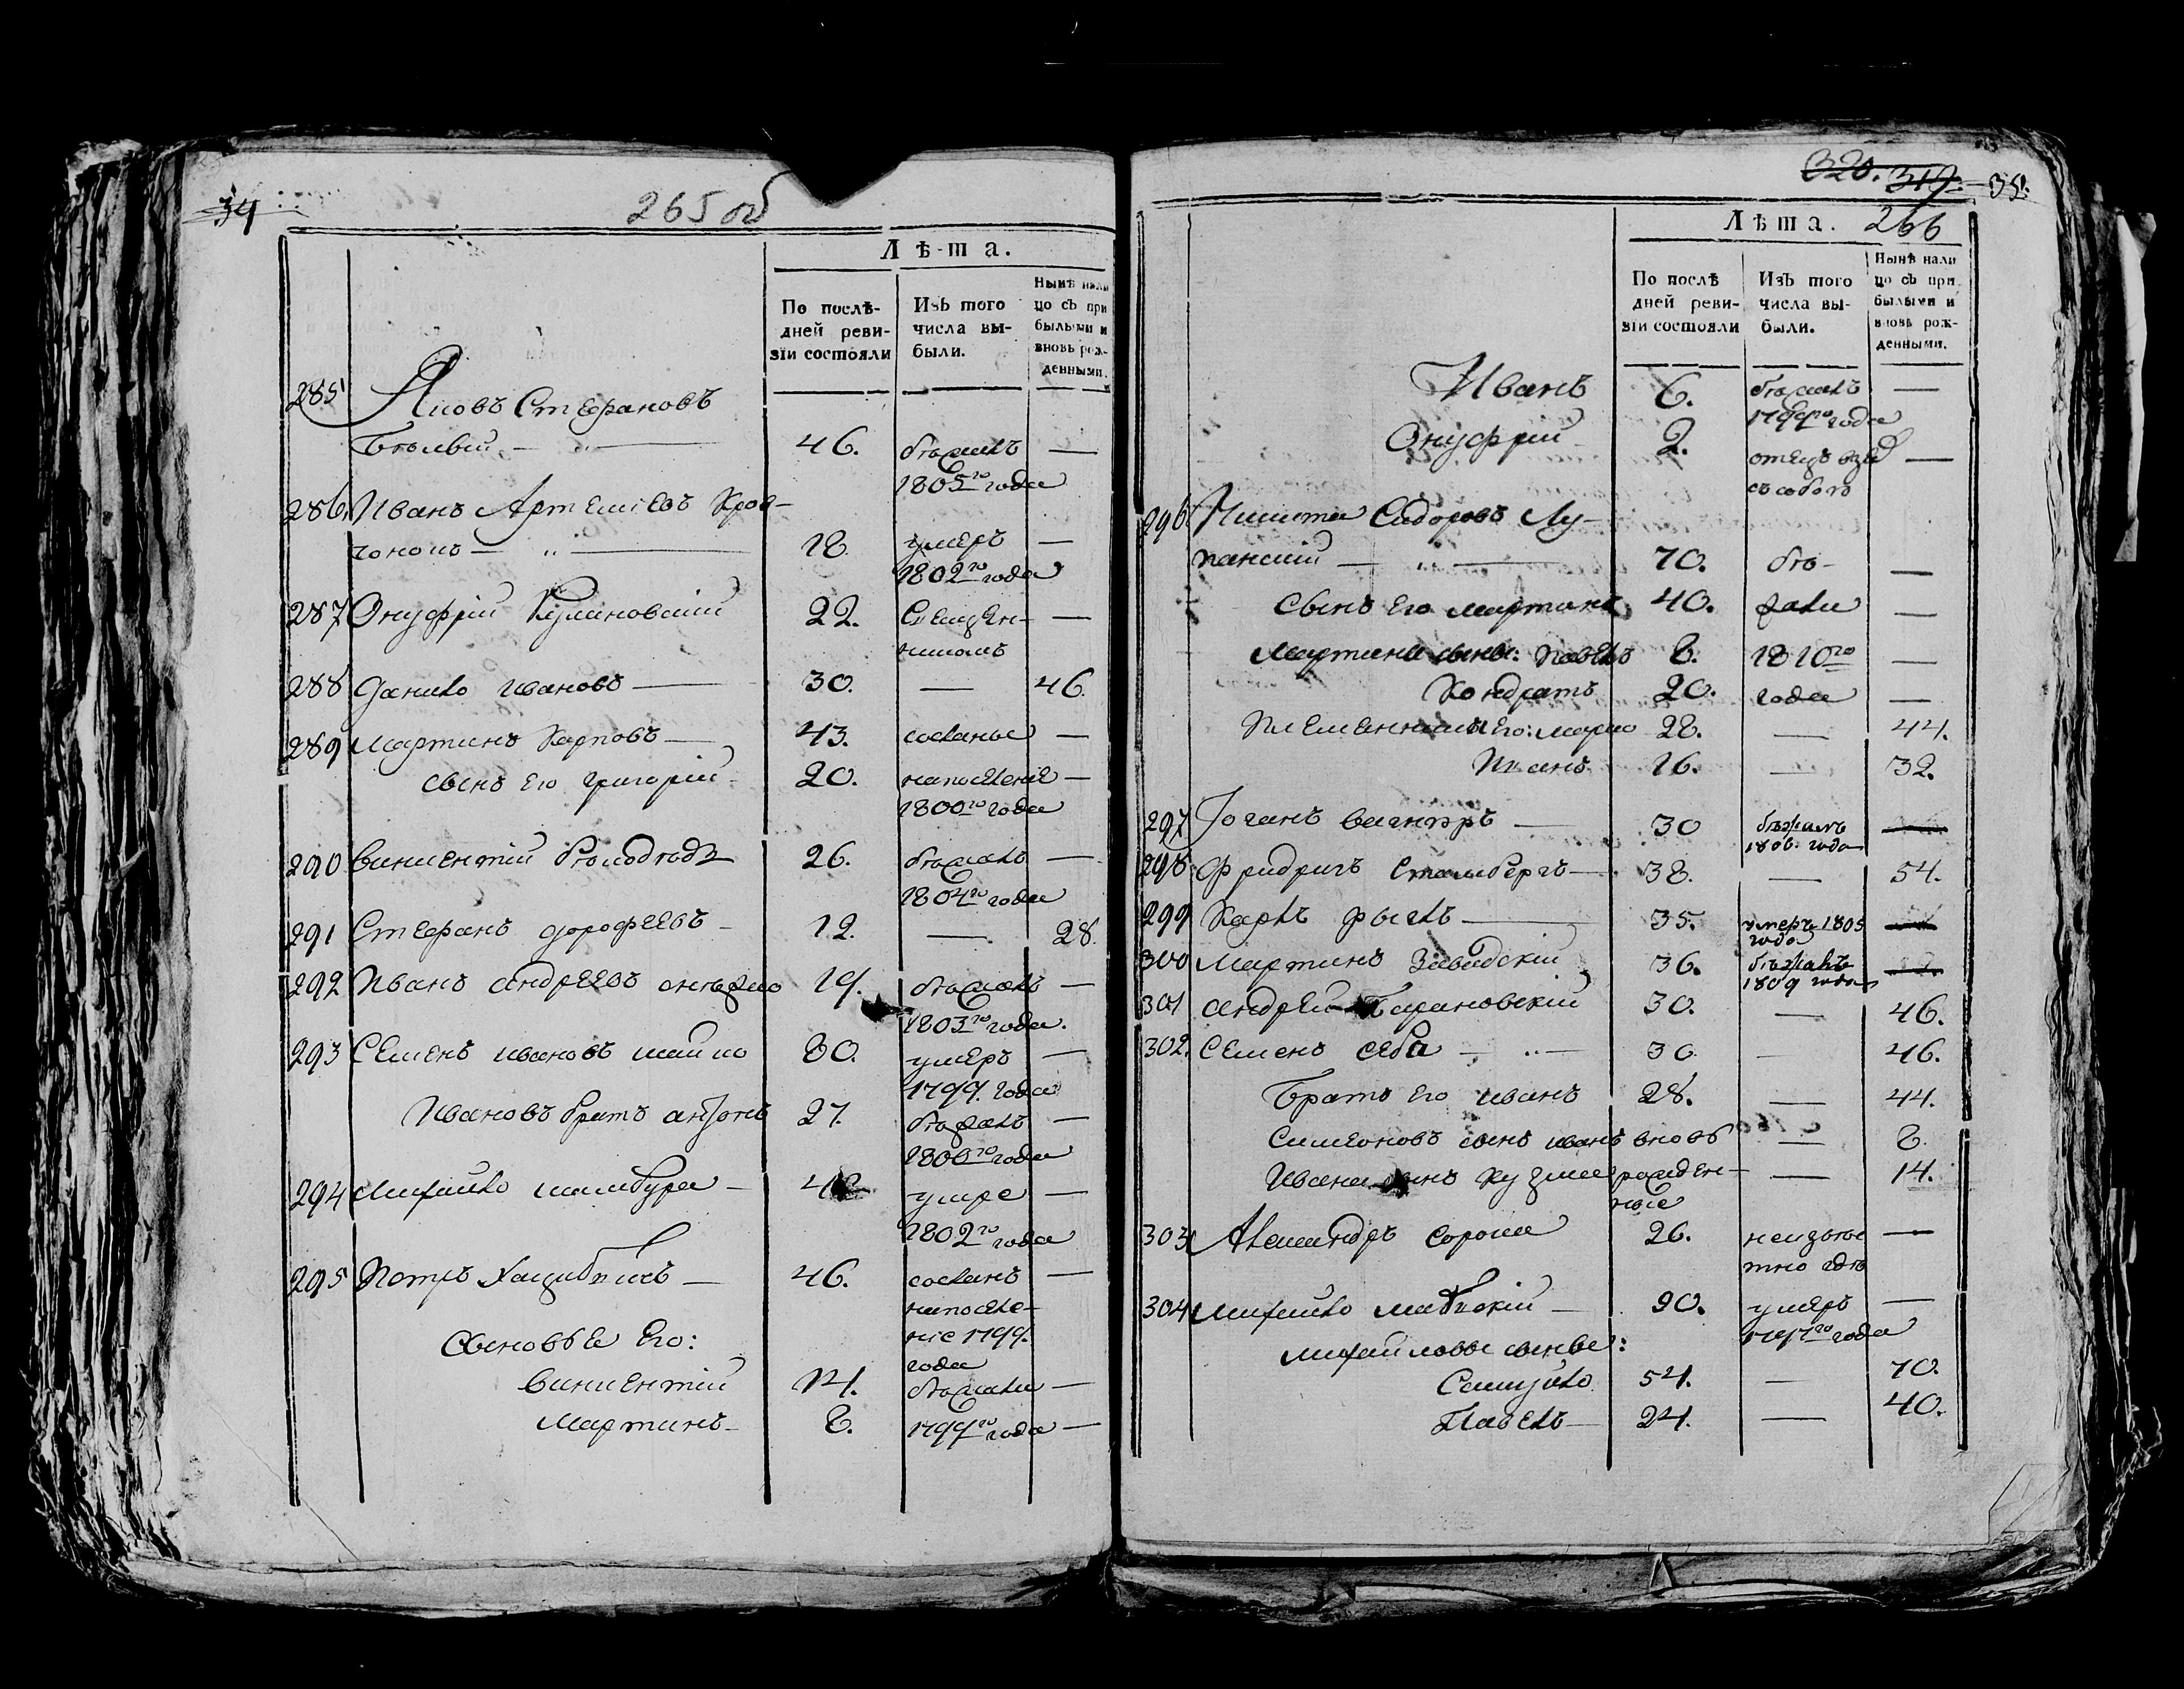 34
265 об
Лѣ-та.
По послѣ-
дней реви-
зіи состояли
Изъ того
числа вы-
были.
Нынѣ нали
цо съ при
былыми и
вновь рож-
денными.
285 Яковъ Стефановъ
Бѣлый — 46. бѣжалъ —
1805го года
286. Иванъ Артемiевъ
18. умеръ —
1802го года
287 Онуфрiй Куликовскiй 22. Священ- —
никомъ
288 Данило Ивановъ — 30. — 46.
289 Мартинъ Карповъ — 43. сосланы —
сынъ его григорiй 20. напоселенiе —
1800го года
290 Викентiй 26. бѣжалъ —
1804го года
291 Стефанъ дорофеевъ — 12. — 28.
292 Иванъ андреевъ 19. бѣжалъ —
1803го года.
293 Семенъ ивановъ 80. умеръ —
1799. года
Ивановъ братъ антонъ 27. бѣжалъ —
1800го года
294 Михайло шамбура — умре —
1802го года
295 Петръ — 46. сосланъ —
напоселе-
нiе 1799.
года
Сыновья Его:
Викентiй 14. бѣжали —
Мартинъ — 8. 1799го года —
320. 319. 35.
Лѣта. 266
По послѣ
дней реви-
зіи состояли
Изъ того
числа вы-
были.
Нынѣ нали
цо съ при
былыми и
вновь рож-
денными.
Иванъ 6. бѣжалъ —
1799го года
Онуфрiй 2. отецъ взялъ —
съ собою
296 Никита Сидоровъ Лу-
панскiй — 70. бѣ- —
сынъ Его мартинъ 40. жали —
Мартина сыны: павелъ 8. 1810го —
Кондратъ 20. года —
Племянники Его: марко 28. — 44.
Иванъ 16. — 32.
297 Iоганъ вагнеръ — 30 бѣжалъ —
1806. года
298 Фридрихъ Стамбергъ — 38. — 54.
299 Карлъ — 35. умеръ 1805
года
300 Мартинъ Завадскiй 36. бѣжалъ
1809 года
301 андрей Барановскiй 30. — 46.
302. Семенъ себа — 30 — 46.
Братъ Его иванъ 28. — 44.
Симеоновъ сынъ иванъ вновь — 8.
Ивана сынъ Кузма рожден- — 14.
ные
303 Александръ сорока 26. неизвѣс —
тно гдѣ
304 Михайло — 90. умеръ —
1797го года
михайловы сыны:
Самуйло 54. — 70.
Павелъ — 24. — 40.